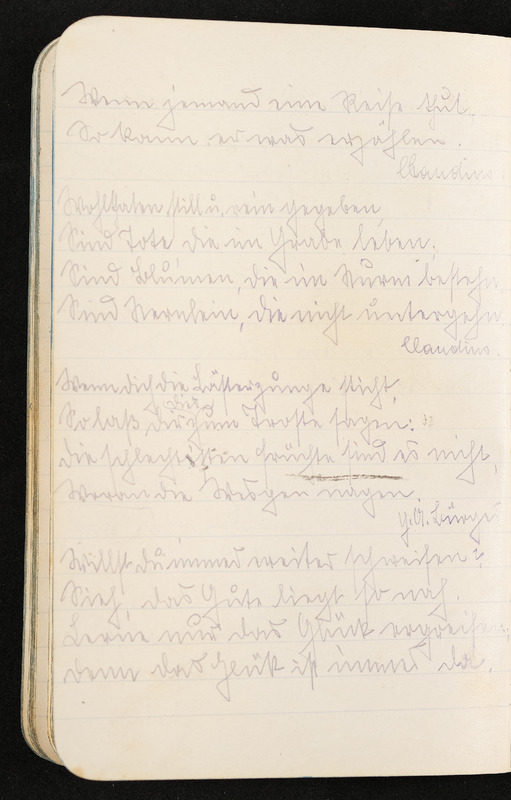 Wenn jemand eine Reise thut,
So kann er was erzählen.
Claudius.
Wohltaten, still u. rein gegeben,
Sind Tote die im Grabe leben;
Sind Blumen, die im Sturm bestehn,
Sind Sternlein, die nicht untergehn.
Claudius.
Wenn dich die Lästerzunge sticht,
So laß dir dies zum Troste sagen:
Die schlechtsten Früchte sind es nicht,
Woran die Wespen nagen.
G. A. Bürger
Willst du immer weiter schweifen?
Sieh, das Gute liegt so nah.
Lerne nur das Glück ergreifen;
denn das Glük ist immer da.